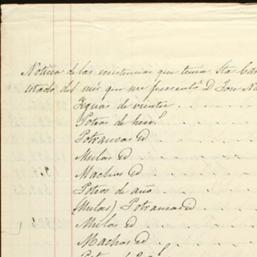 Noticia de las existencias que tenia Sta Bar
estado del mes que me presentó D. Jose No
Yeguas de vientre
Potros de hier.º
Potrancas Yd
Mulas Yd
Machos Yd
Potros de año
(Mulas) Potrancas Yd
Mulas Yd
Machos Yd